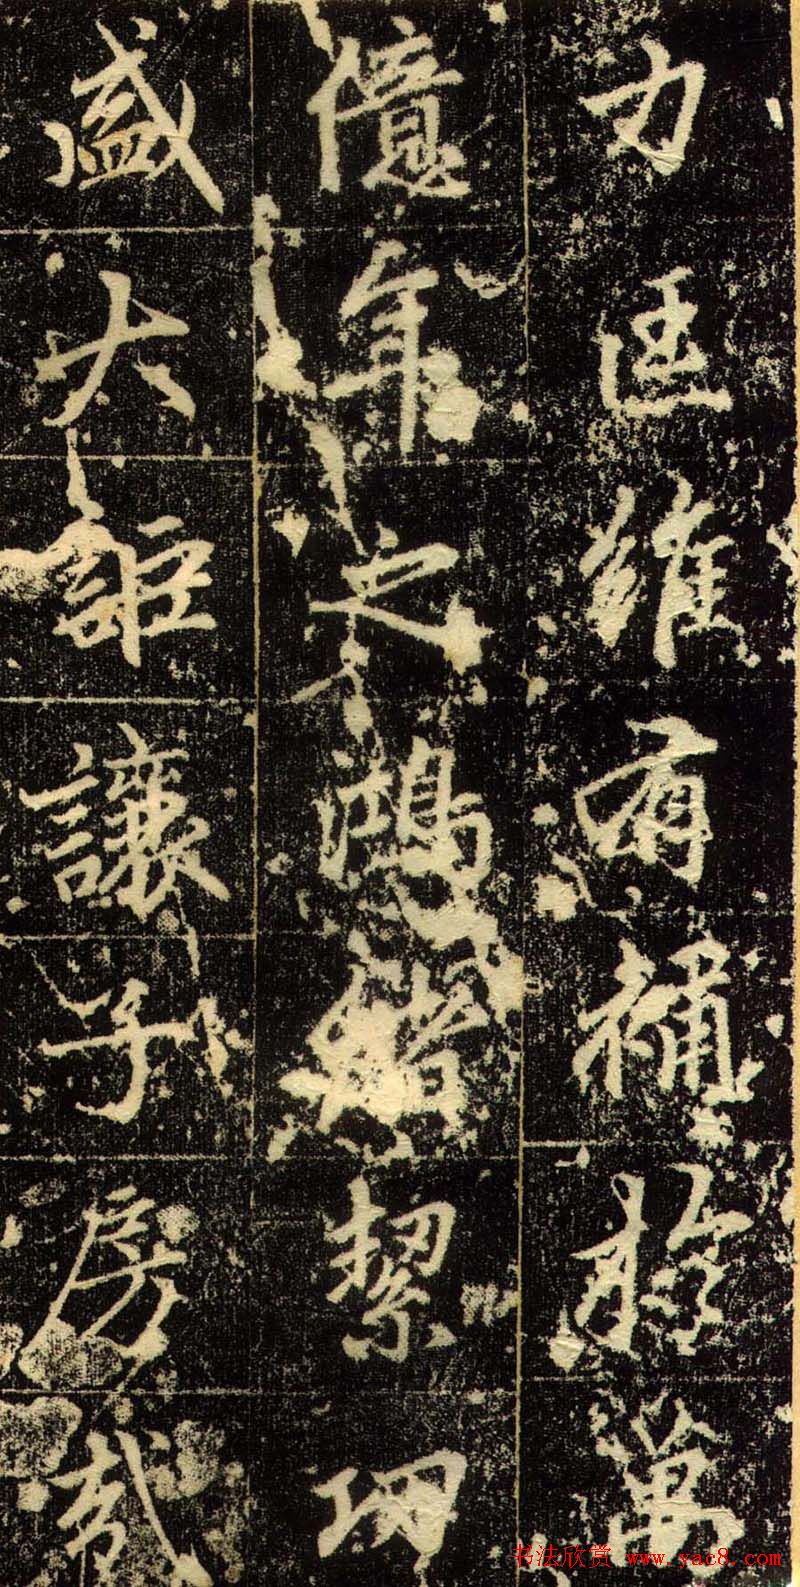 力匡維有補於萬
億年之鴻緒絜功
盛大詎讓子房哉
书法欣赏 www.yac8.com